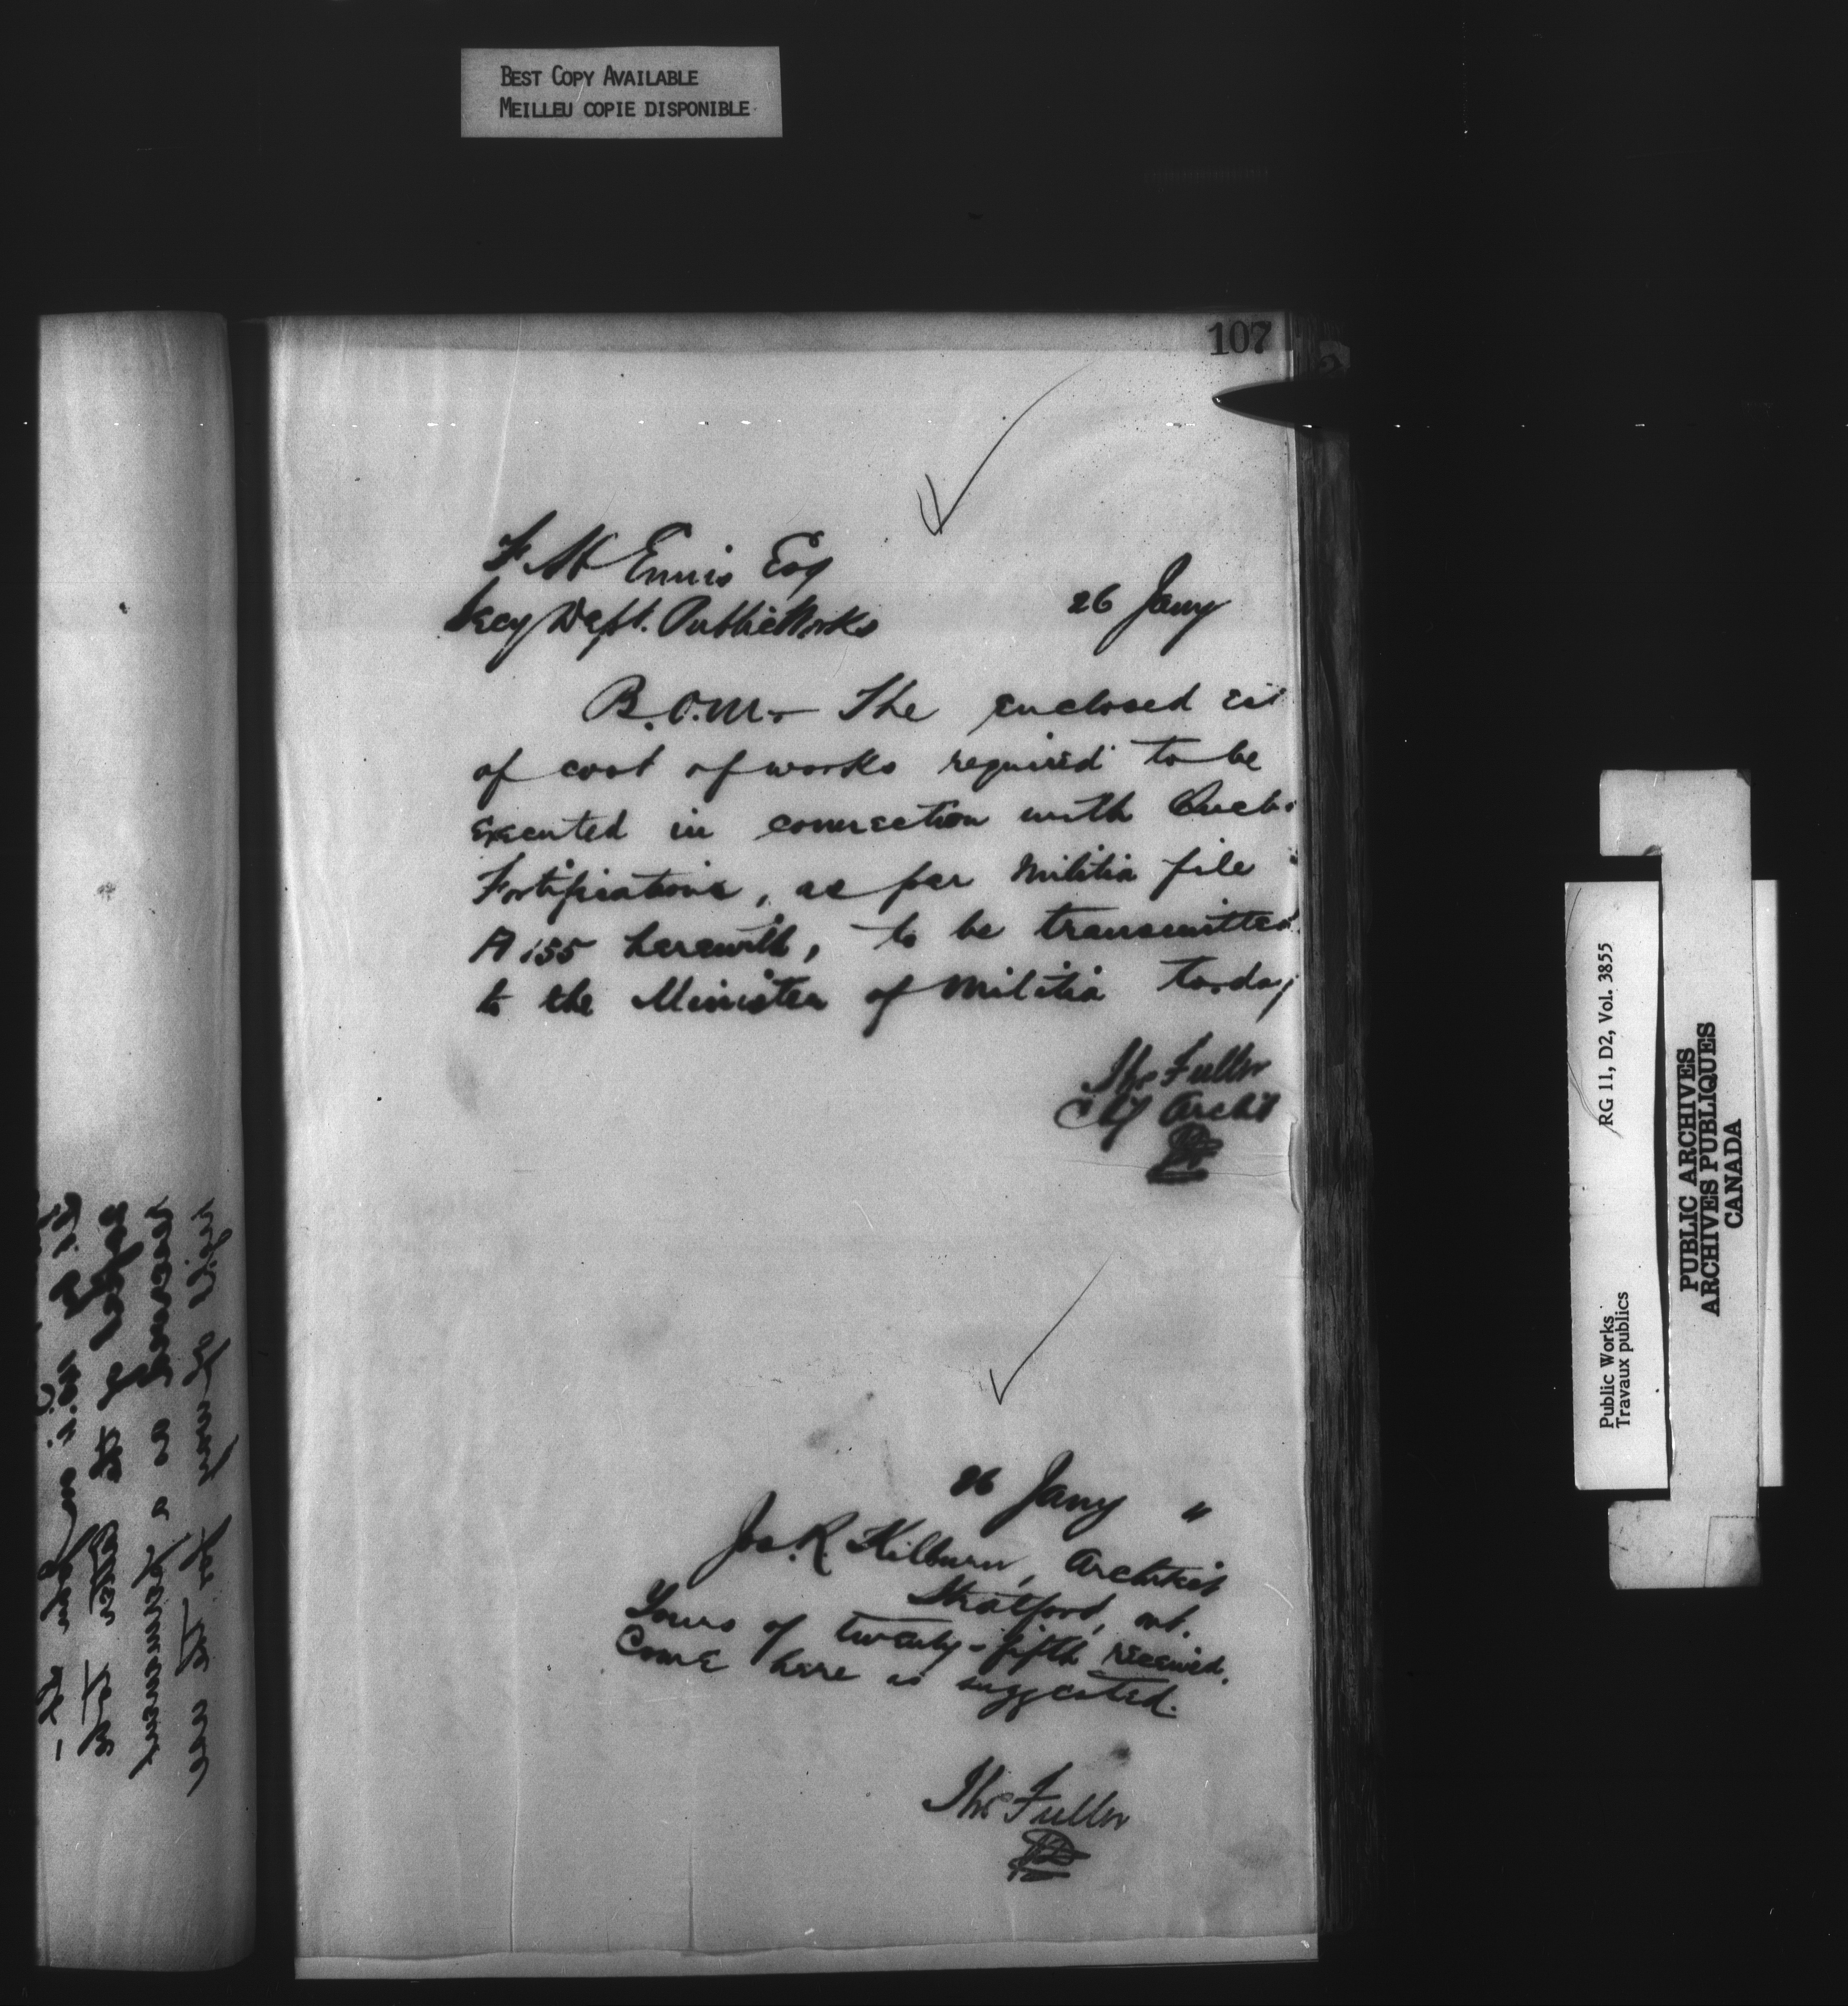 BEST COPY AVAILABLE
MEILLEU COPIE DISPONIBLE
107
F H Ennis Esq
Secy Dept. Public Works
26 Jany
B.O.M. The enclosed est
of cost of works required to be
executed in connection with Quebe
Fortifications, as per Militia file
A 155 herewith, to be transmitted
to the Minister of Militia to-day
Thos Fuller
Chf Archt
26 Jany "
Jos. R. Kilburn, Architect
Stratford, Ont.
Yours of twenty-fifth received.
Come here as suggested.
Thos Fuller
RG 11, D2, Vol. 3855
Public Works
Travaux publics
PUBLIC ARCHIVES
ARCHIVES PUBLIQUES
CANADA